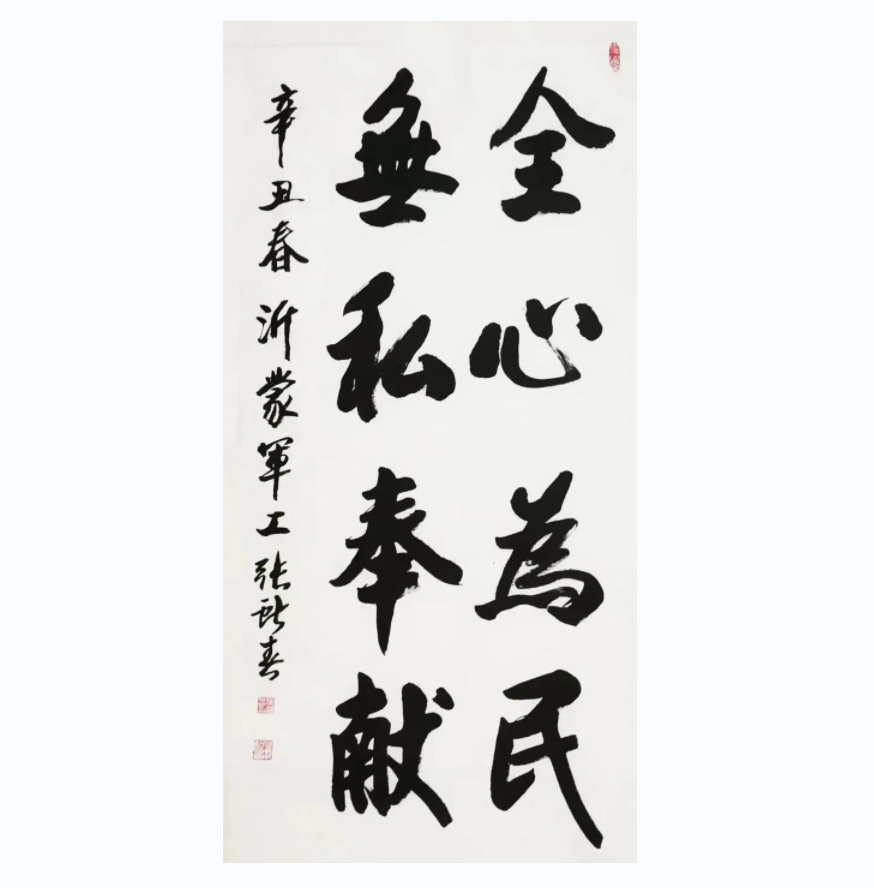 全心為民
無私奉献
辛丑春沂蒙軍工張